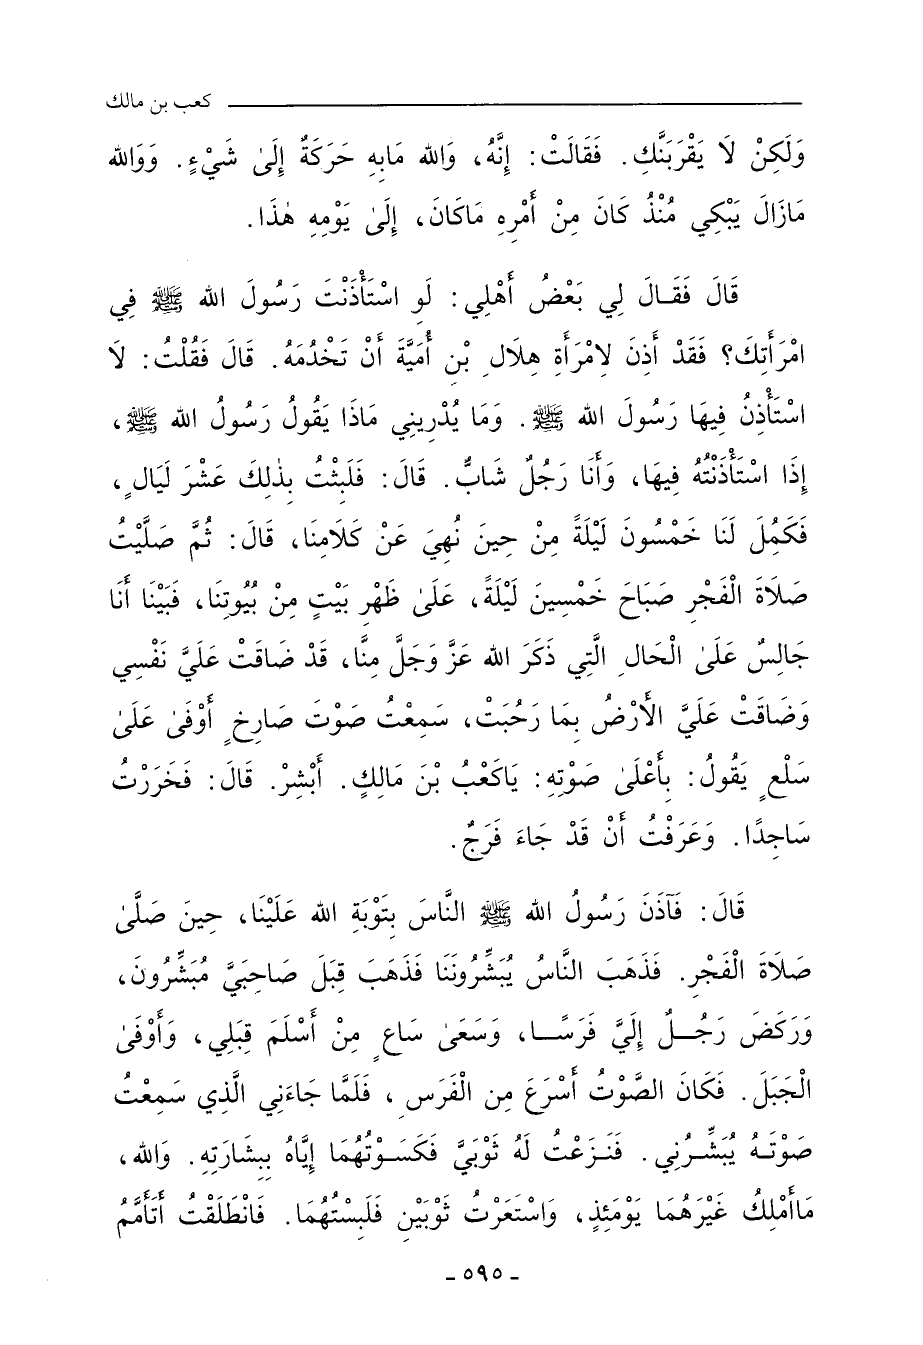 كعب بن مالك
وَلَكِنْ لَا يَقْرَبَنَّكِ. فَقَالَتْ: إِنَّهُ، وَالله مَابِهِ حَرَكَةٌ إِلَىٰ شَيْءٍ. وَوَالله
مَازَالَ يَبْكِي مُنْذُ كَانَ مِنْ أَمْرِهِ مَاكَانَ، إِلَىٰ يَوْمِهِ هٰذَا.
قَالَ فَقَـالَ لِي بَعْضُ أَهْلِي: لَوِ اسْتَأْذَنْتَ رَسُولَ الله ﷺ فِي
امْرَأَتِكَ؟ فَقَدْ أَذِنَ لِامْرَأَةِ هِلَالِ بْنِ أُمَيَّةَ أَنْ تَخْدُمَهُ. قَالَ فَقُلْتُ: لَا
اسْتَأْذِنُ فِيهَا رَسُولَ الله ﷺ. وَمَا يُدْرِينِي مَاذَا يَقُولُ رَسُولُ الله ﷺ،
إِذَا اسْتَأْذَنْتُهُ فِيهَا، وَأَنَا رَجُلٌ شَابٌّ. قَالَ: فَلَبِثْتُ بِذٰلِكَ عَشْرَ لَيَالٍ،
فَكَمُلَ لَنَا خَمْسُونَ لَيْلَةً مِنْ حِينَ نُهِيَ عَنْ كَلَامِنَا، قَالَ: ثُمَّ صَلَّيْتُ
صَلَاةَ الْفَجْرِ صَبَاحَ خَمْسِينَ لَيْلَةً، عَلَىٰ ظَهْرِ بَيْتٍ مِنْ بُيُوتِنَا، فَبَيْنَا أَنَا
جَالِسٌ عَلَىٰ الْحَالِ الَّتِي ذَكَرَ الله عَزَّ وَجَلَّ مِنَّا، قَدْ ضَاقَتْ عَلَيَّ نَفْسِي
وَضَاقَتْ عَلَيَّ الأَرْضُ بِمَا رَحُبَتْ، سَمِعْتُ صَوْتَ صَارِخٍ أَوْفَىٰ عَلَىٰ
سَلْعٍ يَقُولُ: بِأَعْلَىٰ صَوْتِهِ: يَاكَعْبُ بْنَ مَالِكٍ. أَبْشِرْ. قَالَ: فَخَرَرْتُ
سَاجِدًا. وَعَرَفْتُ أَنْ قَدْ جَاءَ فَرَجٌ.
قَالَ: فَآذَنَ رَسُولُ الله ﷺ النَّاسَ بِتَوْبَةِ الله عَلَيْنَا، حِينَ صَلَّىٰ
صَلَاةَ الْفَجْرِ. فَذَهَبَ النَّاسُ يُبَشِّرُونَنَا فَذَهَبَ قِبَلَ صَاحِبَيَّ مُبَشِّرُونَ،
وَرَكَضَ رَجُـــلٌ إِلَيَّ فَرَسًــا، وَسَعَىٰ سَاعٍ مِنْ أَسْلَمَ قِبَلِي، وَأَوْفَىٰ
الْجَبَلَ. فَكَانَ الصَّوْتُ أَسْرَعَ مِنِ الْفَرَسِ، فَلَمَّا جَاءَنِي الَّذِي سَمِعْتُ
صَوْتَـهُ يُبَشِّــرُنِي. فَنَـزَعْتُ لَهُ ثَوْبَيَّ فَكَسَـوْتُهُمَا إِيَّاهُ بِبِشَارَتِهِ. وَالله،
مَاأَمْلِكُ غَيْرَهُمَا يَوْمَئِذٍ، وَاسْتَعَرْتُ ثَوْبَيْنِ فَلَبِسْتُهُمَا. فَانْطَلَقْتُ أَتَأَمَّمُ
- ٥٩٥ -